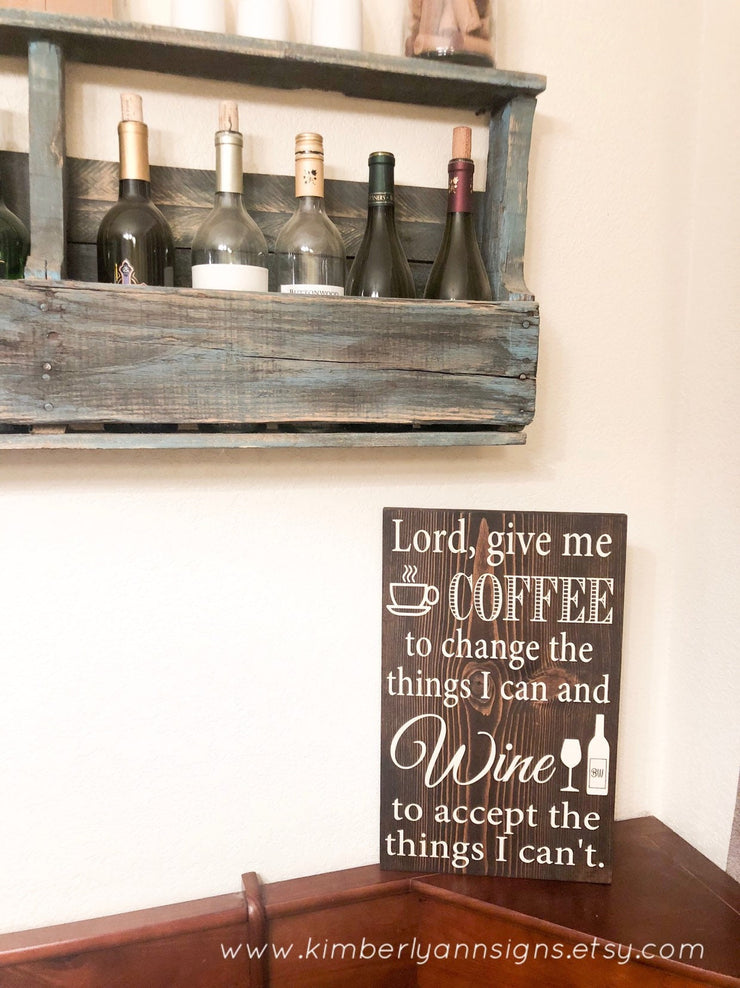 Lord, give me
COFFEE
to change the
things I can and
Wine
BW
to accept the
things I can't.
www.kimberlyannsigns.etsy.com